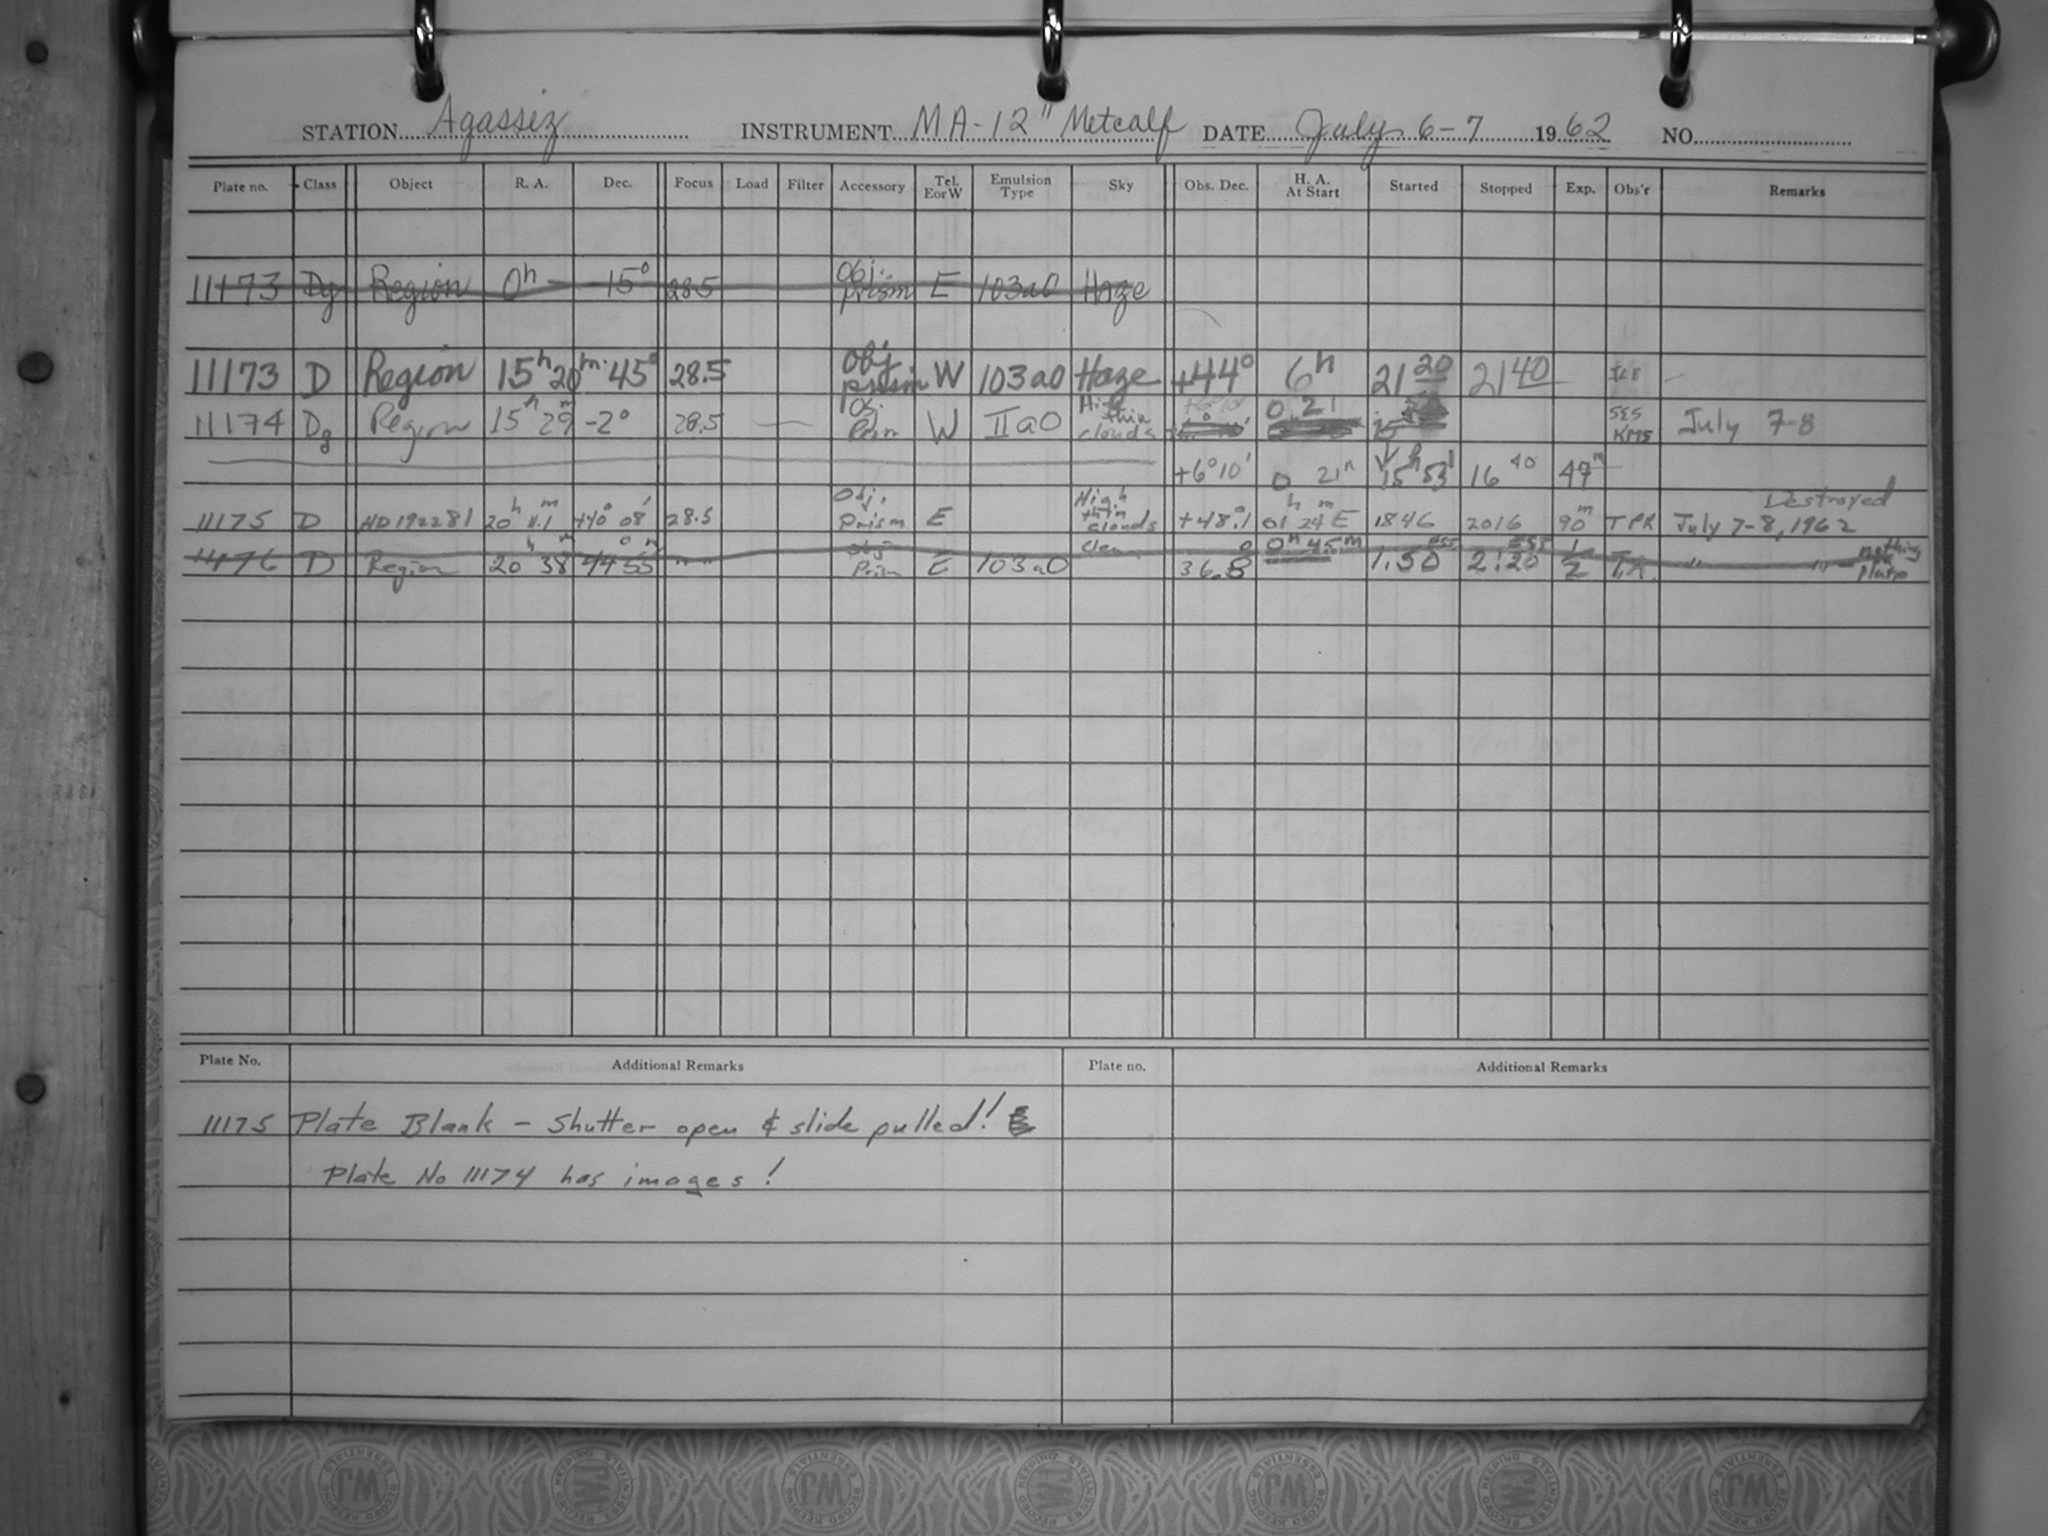 STATION Agassiz INSTRUMENT MA-12" Metcalf DATE July 6-7 1962 NO.
Plate no. Class Object R. A. Dec. Focus Load Filter Accessory Tel. E or W Emulsion Type Sky Obs. Dec. H. A. At Start Started Stopped Exp. Obs'r Remarks
11173 Dg Region 0h -15° 28.5 Obj. prism E 103a0 Haze
11173 D Region 15h 20m 45° 28.5 Obj prism W 103a0 Haze +44° 6h 21 20 21 40
11174 Dg Region 15h 29m -2° 28.5 — W IIa0 High thin clouds 0 21 SES KMS July 7-8
+6° 10' 0 21 15h 53 16 40 47m
11175 D HD 192281 20h 11.1m +40° 08' 28.5 Obj. Prism E High thin clouds +48.1° 01h 24m E 1846 2016 90m TPR July 7-8, 1962 Destroyed
11176 D Region 20h 38m 44° 55m " " Obj Prism E 103a0 Clear 36.8° 0h 45m 1:50 EST 2:20 EST 1/2 " " nothing plate
Plate No. Additional Remarks Plate no. Additional Remarks
11175 Plate Blank - Shutter open & slide pulled!
Plate No 11174 has images!